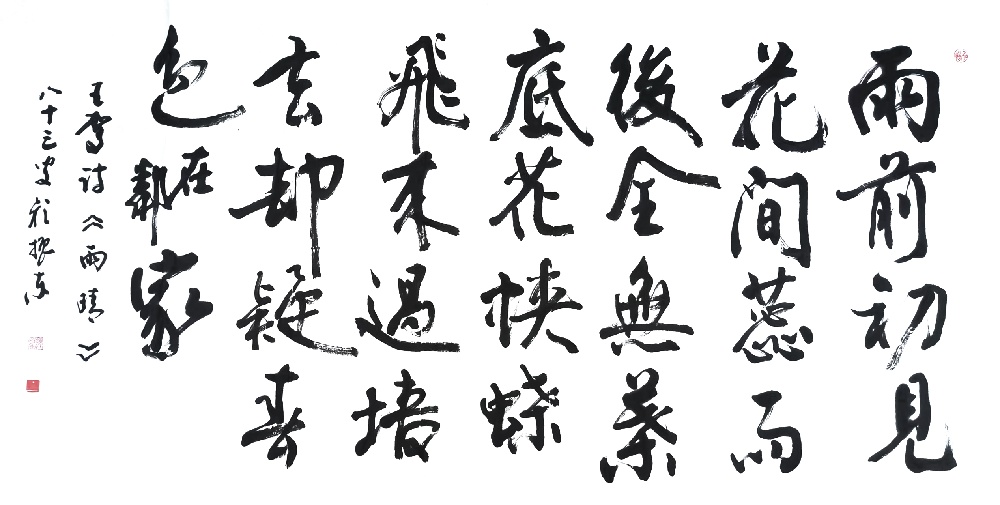 雨前初見
花間蕊雨
後全無葉
底花蛺蝶
飛来過墙
去却疑春
色在鄰家
王駕诗《雨晴》
八十三叟